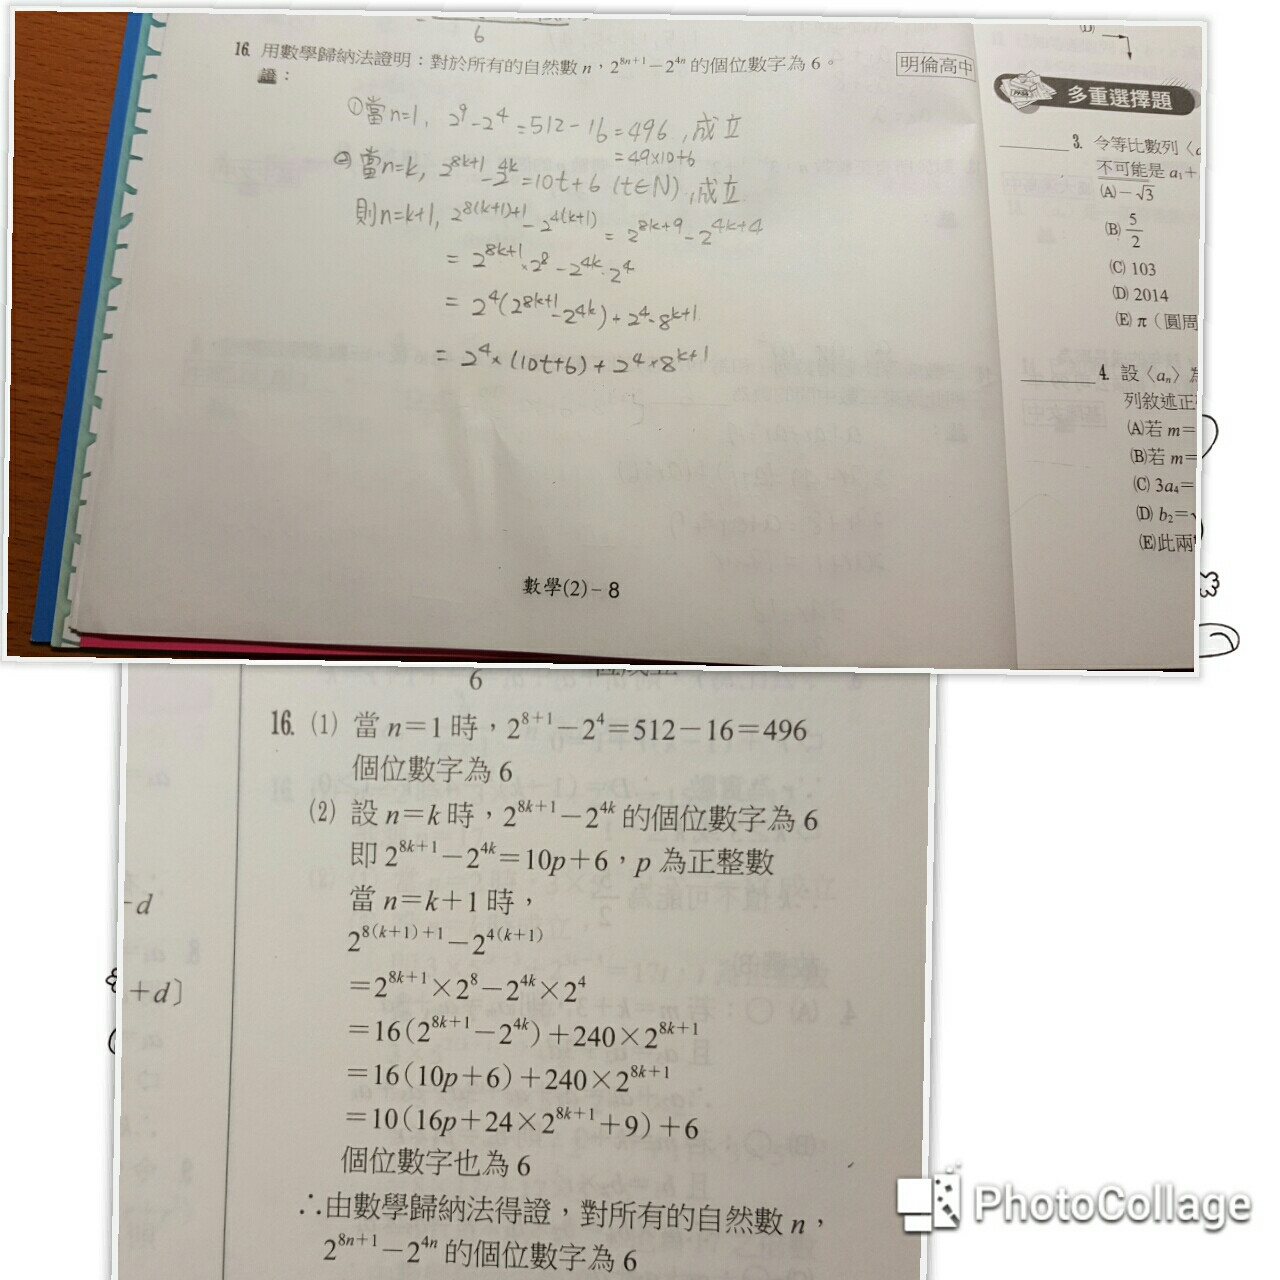 6
16. 用數學歸納法證明：對於所有的自然數 n，2^{8n+1}－2^{4n} 的個位數字為 6。
明倫高中
證：
①當n=1, 2^9-2^4=512-16=496,成立
=49×10+6
②當n=k, 2^{8k+1}-2^{4k}=10t+6 (t∈N),成立
則n=k+1, 2^{8(k+1)+1}-2^{4(k+1)} = 2^{8k+9}-2^{4k+4}
= 2^{8k+1}×2^8-2^{4k}·2^4
= 2^4(2^{8k+1}-2^{4k})+2^4·8^{k+1}
= 2^4×(10t+6)+2^4×8^{k+1}
數學(2)－8
(D)
多重選擇題
3. 令等比數列〈a
不可能是 a₁＋
(A)－√3
(B) 5/2
(C) 103
(D) 2014
(E) π（圓周
4. 設〈aₙ〉為
列敘述正
(A)若 m＝
(B)若 m＝
(C) 3a₄＝
(D) b₂＝
(E)此兩
6
16. (1) 當 n＝1 時，2^{8+1}－2^4＝512－16＝496
個位數字為 6
(2) 設 n＝k 時，2^{8k+1}－2^{4k} 的個位數字為 6
即 2^{8k+1}－2^{4k}＝10p＋6，p 為正整數
當 n＝k＋1 時，
2^{8(k+1)+1}－2^{4(k+1)}
＝2^{8k+1}×2^8－2^{4k}×2^4
＝16(2^{8k+1}－2^{4k})＋240×2^{8k+1}
＝16(10p＋6)＋240×2^{8k+1}
＝10(16p＋24×2^{8k+1}＋9)＋6
個位數字也為 6
∴由數學歸納法得證，對所有的自然數 n，
2^{8n+1}－2^{4n} 的個位數字為 6
-d
+d〕
PhotoCollage